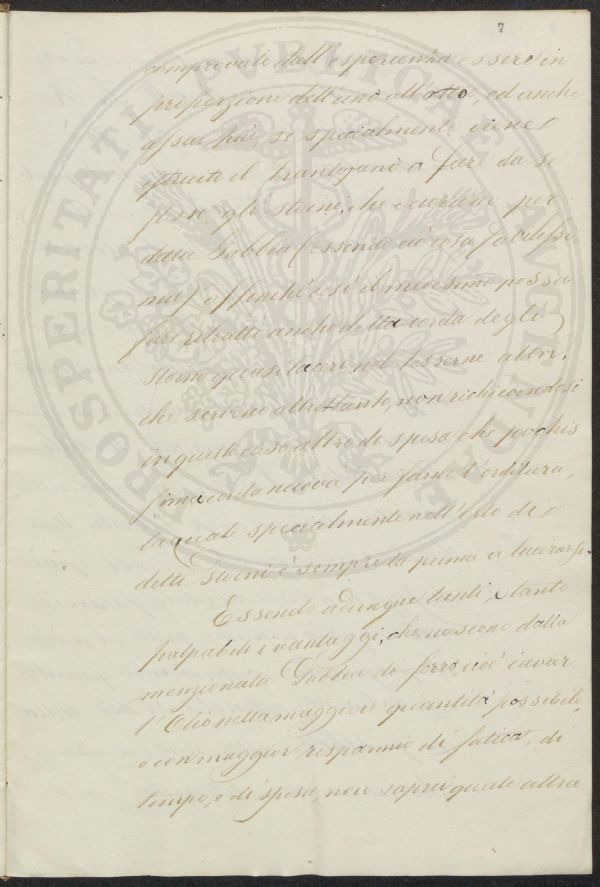 7
comprovato dall'esperienza essere in
proporzione dell'uno all'otto, ed anche
assai più, se specialmente viene
istruito il trantojano a fare da se
stesso gli stoini, che occorrono per
detta Gabbia (essendo ciò cosa facilissi-
ma) affinché così il medesimo possa
fare ritratto anche della corda degli
stoini quasi laceri nel tesserne altri,
che servono altrettanto, non richiedendosi
in questo caso altro di spesa che pochis
sima corda nuova per farne l'orditura,
la quale specialmente nell'Orlo de
detti stoini è sempre la prima a lacerarsi.
Essendo adunque tanti, e tanto
palpabili i vantaggi, che nascono dalla
menzionata Gabbia di ferro, cioè cavar
l'Olio nella maggiore quantità possibile,
e con maggior risparmio di fatica, di
tempo, e di spesa, non saprei quale altra
PROSPERITATI PUBLICAE AUGENDAE